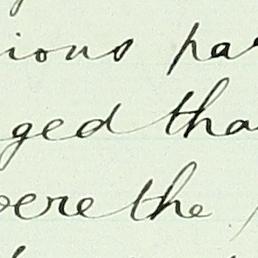 ious pa
ged tha
were the